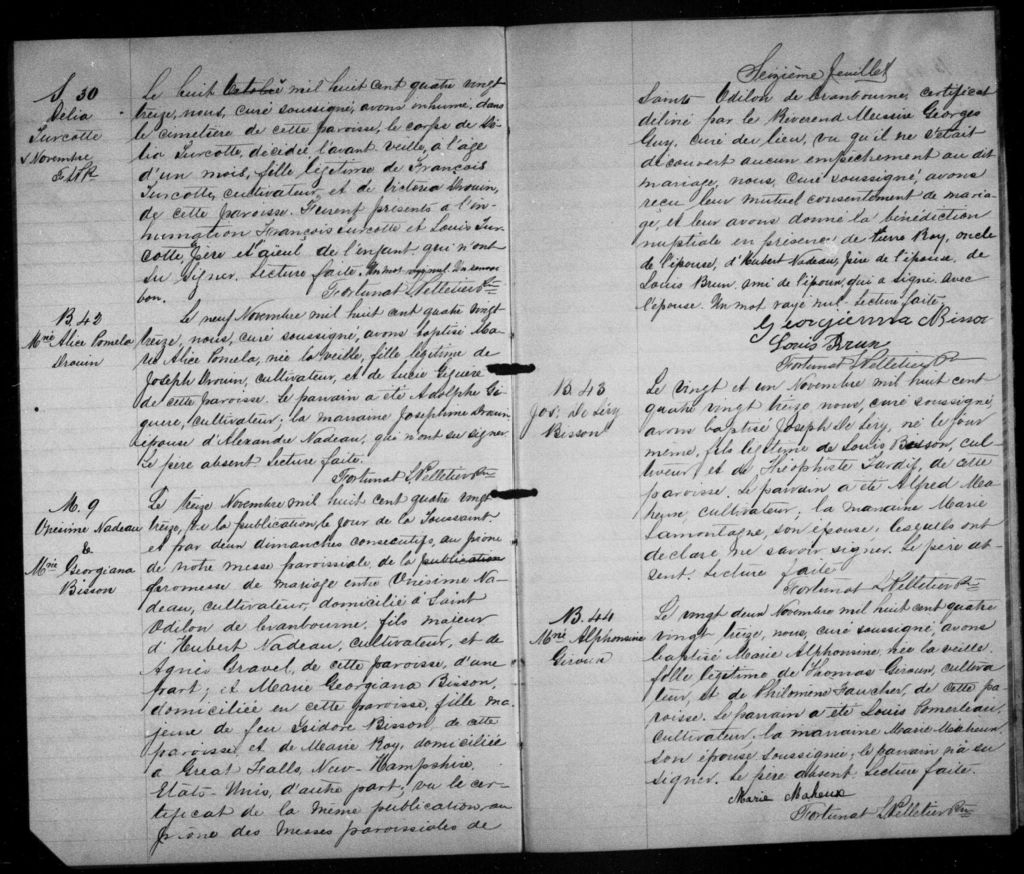 S 30
Délia
Turcotte
Novembre
F L P.
Le huit Octobre mil huit cent quatre vingt
treize, nous, curé soussigné, avons inhumé, dans
le cimetière de cette paroisse, le corps de Dé-
lia Turcotte, décédée l'avant veille, à l'âge
d'un mois, fille légitime de François
Turcotte, cultivateur, et de Victoria Drouin,
de cette paroisse. Furent présents à l'in-
humation François Turcotte et Louis Tur-
cotte, père et aïeul de l'enfant qui n'ont
su signer. Lecture faite. Un mot rayé nul. Un renvoi
bon.
Fortunat L Pelletier Ptre
B. 42
Mrie Alice Pomela
Drouin
Le neuf Novembre mil huit cent quatre vingt
treize, nous, curé soussigné, avons baptisé Ma-
rie Alice Pomela, née la veille, fille légitime de
Joseph Drouin, cultivateur, et de Lucie Giguère
de cette paroisse. Le parrain a été Adolphe Gi-
guère, cultivateur; la marraine Josephine Drouin
épouse d'Alexandre Nadeau, qui n'ont su signer.
Le père absent. Lecture faite.
Fortunat L Pelletier Ptre
M. 9
Onésime Nadeau
&
Mrie Georgiana
Bisson
Le treize Novembre mil huit cent quatre vingt
treize, vu la publication, le jour de la Toussaint
et par deux dimanches consécutifs, au prône
de notre messe paroissiale, de la publication
promesse de mariage entre Onésime Na-
deau, cultivateur, domicilié à Saint
Odilon de Cranbourne, fils majeur
d'Hubert Nadeau, cultivateur, et de
Agnès Gravel, de cette paroisse, d'une
part; et Marie Georgiana Bisson,
domiciliée en cette paroisse, fille ma-
jeure de feu Isidore Bisson, de cette
paroisse, et de Marie Roy, domiciliée
à Great Falls, New-Hampshire,
Etats-Unis, d'autre part; vu le cer-
tificat de la même publication, au
prône des messes paroissiales de
Seizième feuillet
Saint Odilon de Cranbourne, certificat
délivré par le Révérend Messire Georges
Guy, curé du lieu, vu qu'il ne s'était
découvert aucun empêchement au dit
mariage, nous, curé soussigné, avons
reçu leur mutuel consentement de maria-
ge, et leur avons donné la bénédiction
nuptiale en présence de Pierre Roy, oncle
de l'épouse, d'Hubert Nadeau, père de l'époux, de
Louis Brun, ami de l'époux, qui a signé avec
l'épouse. Un mot rayé nul. Lecture faite.
Georgienna Bisson
Louis Brun
Fortunat L Pelletier Ptre
B. 43
Jos. De Léry
Bisson
Le vingt et un Novembre mil huit cent
quatre vingt treize, nous, curé soussigné,
avons baptisé Joseph De Léry, né le jour
même, fils légitime de Louis Bisson, cul-
tivateur, et de Théophiste Tardif, de cette
paroisse. Le parrain a été Alfred Ma-
heux, cultivateur; la marraine Marie
Lamontagne, son épouse, lesquels ont
déclaré ne savoir signer. Le père ab-
sent. Lecture faite
Fortunat L Pelletier Ptre
B. 44
Mrie Alphonsine
Giroux
Le vingt deux Novembre mil huit cent quatre
vingt treize, nous, curé soussigné, avons
baptisé Marie Alphonsine, née la veille,
fille légitime de Thomas Giroux, cultiva-
teur, et de Philomène Faucher, de cette pa-
roisse. Le parrain a été Louis Pomerleau,
cultivateur; la marraine Marie Maheux,
son épouse soussignée; le parrain n'a su
signer. Le père absent. Lecture faite.
Marie Maheux
Fortunat L Pelletier Ptre